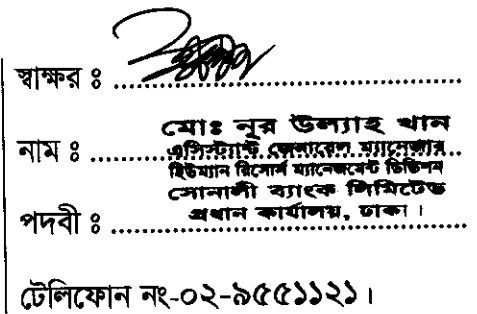 স্বাক্ষর ঃ ....................................................
নাম ঃ ....................................................
মোঃ নূর উল্যাহ খান
এসিস্ট্যান্ট জেনারেল ম্যানেজার
হিউম্যান রিসোর্স ম্যানেজমেন্ট ডিভিশন
সোনালী ব্যাংক লিমিটেড
প্রধান কার্যালয়, ঢাকা ।
পদবী ঃ ....................................................
টেলিফোন নং-০২-৯৫৫১১২১ ।